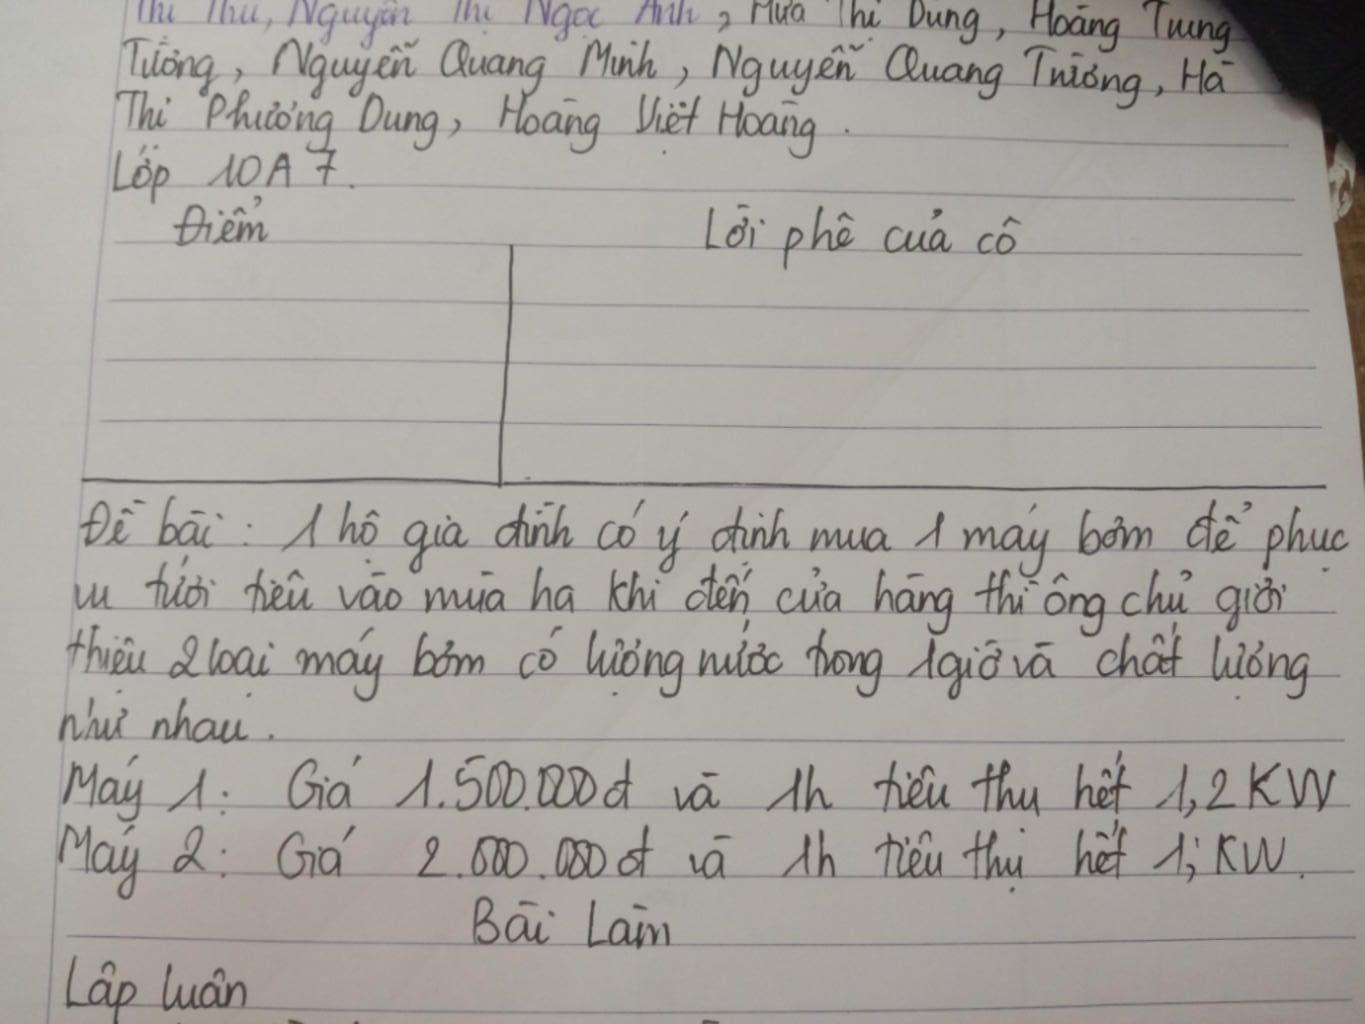 Thị Thu, Nguyễn Thị Ngọc Anh, Hứa Thị Dung, Hoàng Trung
Tường, Nguyễn Quang Minh, Nguyễn Quang Trường, Hà
Thị Phương Dung, Hoàng Việt Hoàng.
Lớp 10A7.
Điểm Lời phê của cô
Đề bài: 1 hộ gia đình có ý định mua 1 máy bơm để phục
vụ tưới tiêu vào mùa hạ khi đến cửa hàng thì ông chủ giới
thiệu 2 loại máy bơm có lượng nước trong 1 giờ và chất lượng
như nhau.
Máy 1: Giá 1.500.000đ và 1h tiêu thụ hết 1,2KW
Máy 2: Giá 2.000.000đ và 1h tiêu thụ hết 1; KW.
Bài Làm
Lập luận